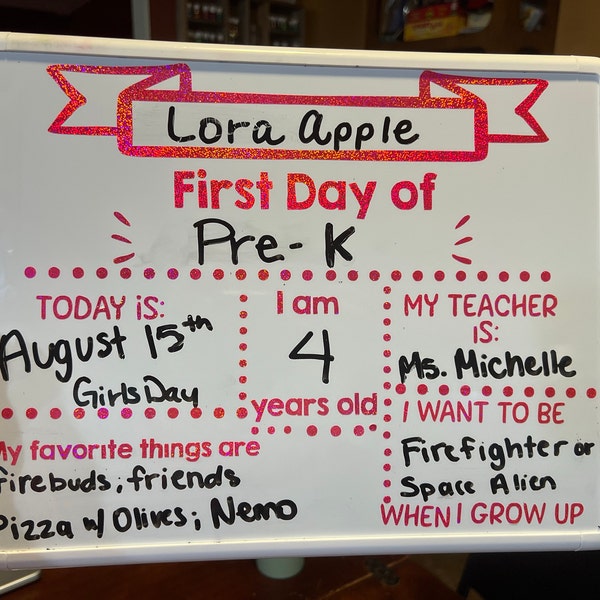 Lora Apple
First Day of
Pre-K
TODAY iS:
August 15th
Girls Day
I am
4
years old
MY TEACHER
iS:
Ms. Michelle
My favorite things are
firebuds; friends
Pizza w/ Olives; Nemo
I WANT TO BE
Firefighter or
Space Alien
WHEN I GROW UP